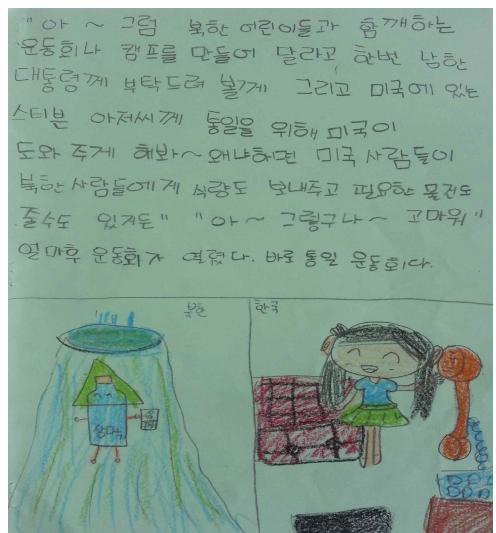 "아~ 그럼 북한 어린이들과 함께하는
운동회나 캠프를 만들어 달라고 한번 남한
대통령께 부탁드려 볼게 그리고 미국에 있는
스티븐 아저씨께 통일을 위해 미국이
도와 주게 해봐~ 왜냐하면 미국 사람들이
북한 사람들에게 식량도 보내주고 필요한 물건도
줄수도 있거든" "아~ 그렇구나~ 고마워"
얼마후 운동회가 열렸다. 바로 통일 운동회다.
북한
한국